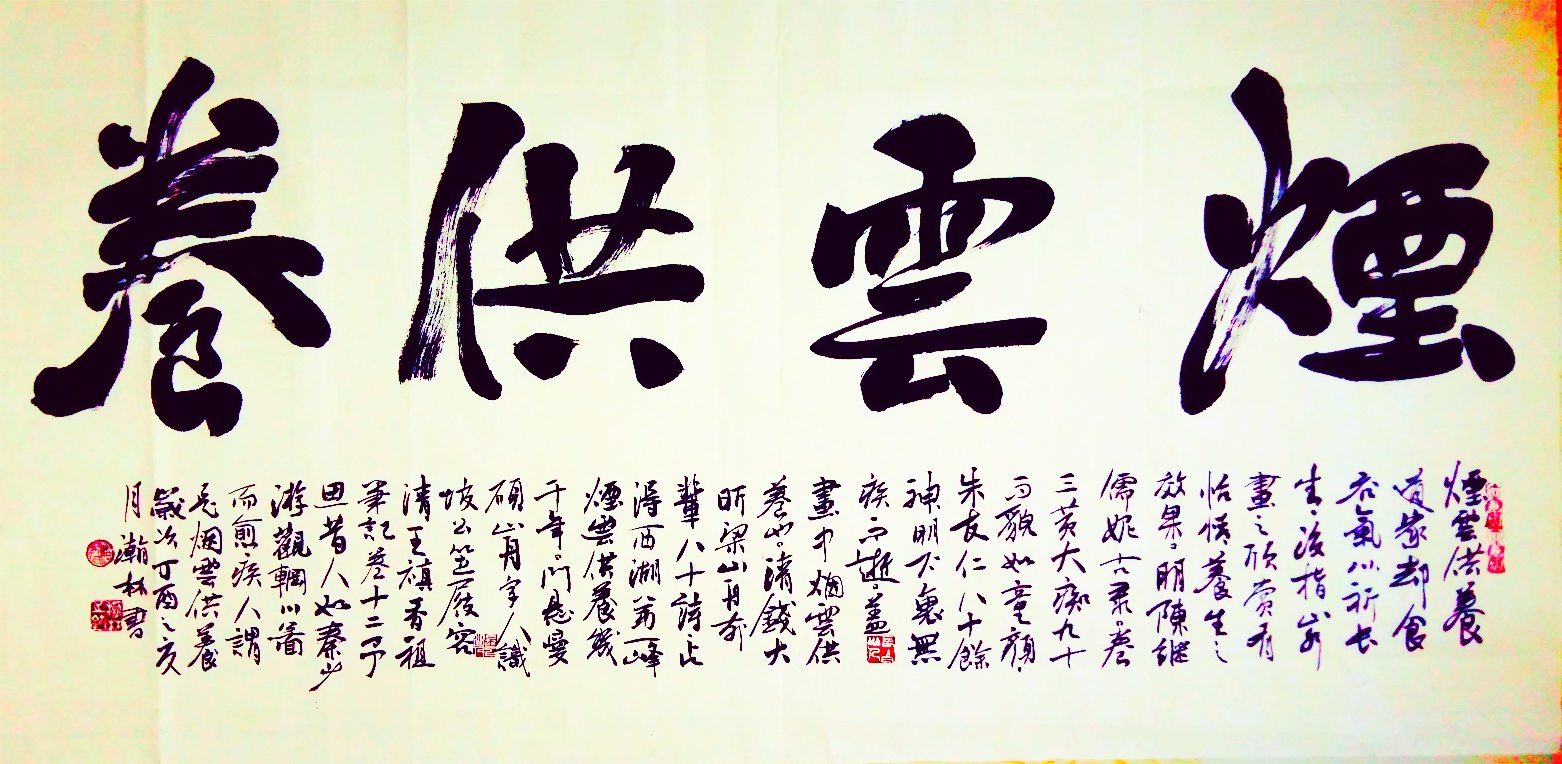 煙雲供養
煙雲供養
道教却食
吞氣以祈長
生後指山水
畫之欣賞有
怡情養生之
效果明陳繼
儒妮古录卷
三黃大癡九十
而貌如童顏
朱友仁八十餘
神明不衰無
疾而逝蓋
畫中烟雲供
養也清錢大
昕梁山舟前
輩八十詩之
得西湖第一峰
煙雲供養幾
千年門懸曼
碩山舟字人識
坡公笠屐容
清王禎香祖
筆記卷十二予
思昔人如秦少
游觀輞川圖
而愈疾人謂
是烟雲供養
歲次丁酉之亥
月瀚林書